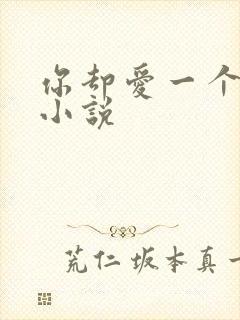 你却爱一个
小说
荒仁坂本真一